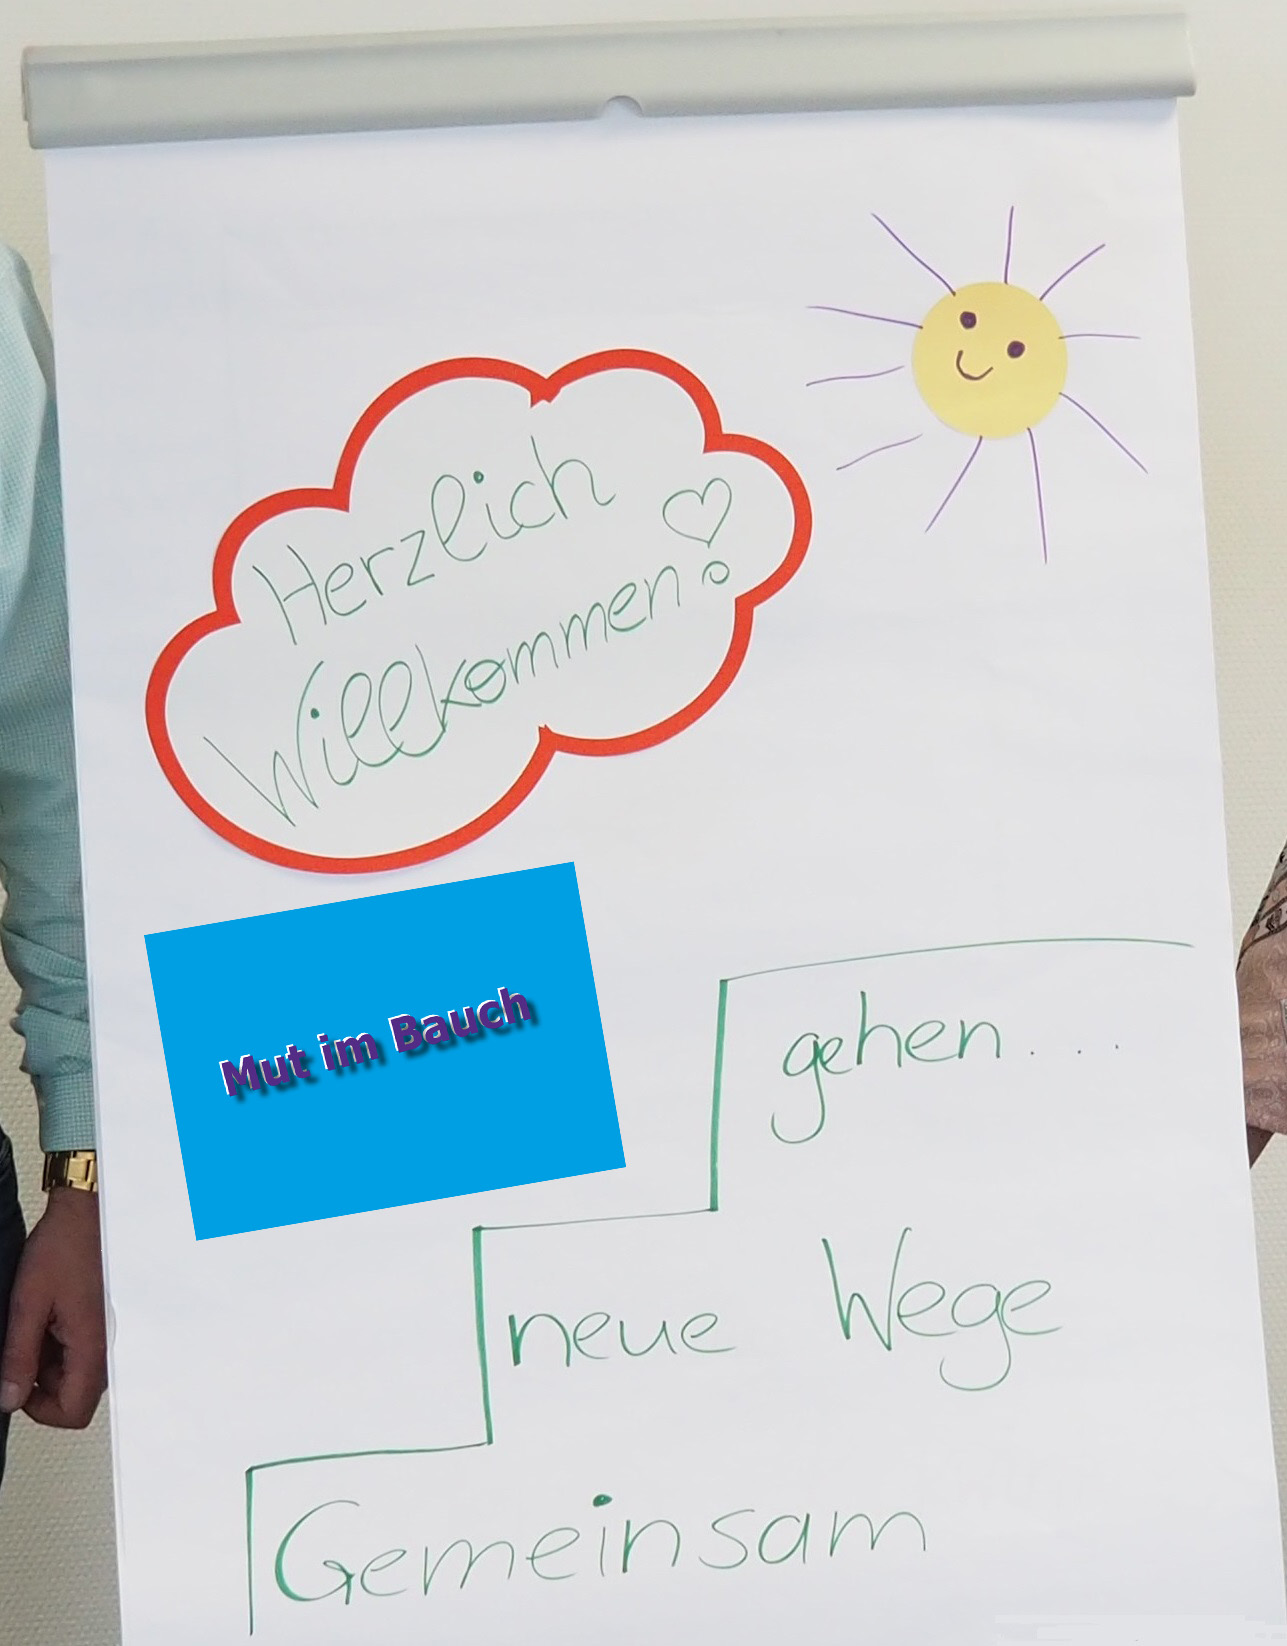 Herzlich
Willkommen!
Mut im Bauch
gehen....
neue Wege
Gemeinsam